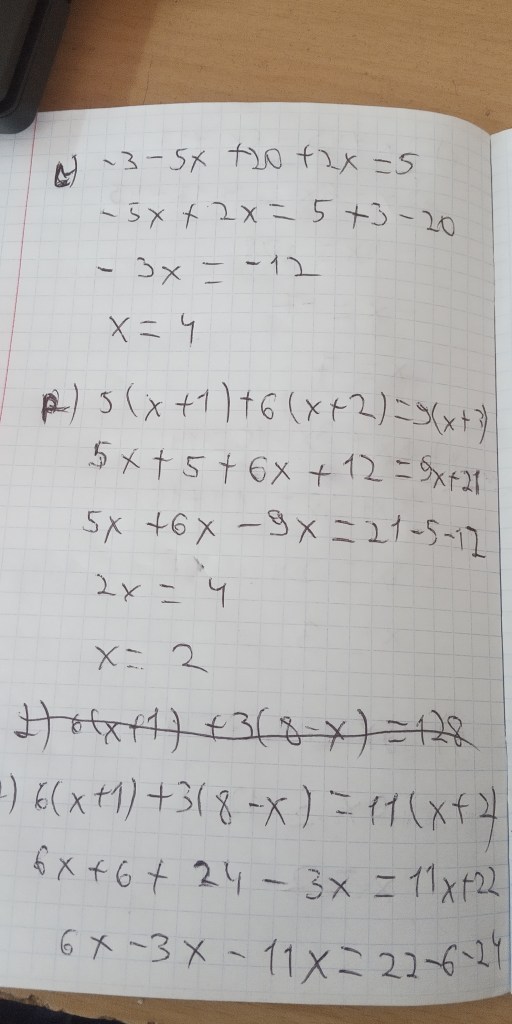 -3-5x+20+2x=5
-5x+2x=5+3-20
-3x=-12
x=4
5(x+1)+6(x+2)=9(x+3)
5x+5+6x+12=9x+21
5x+6x-9x=21-5-12
2x=4
x=2
6(x+1)+3(8-x)=128
6(x+1)+3(8-x)=11(x+2)
6x+6+24-3x=11x+22
6x-3x-11x=22-6-24